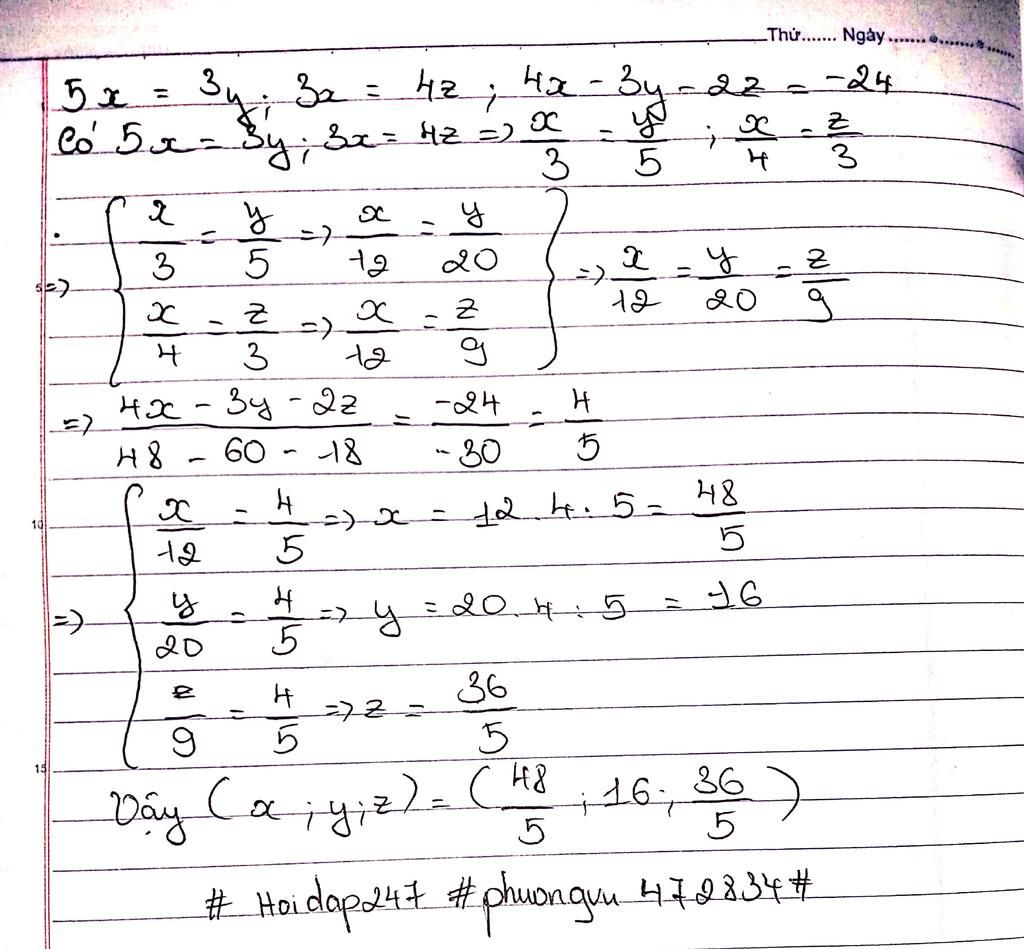 Thứ....... Ngày ....................
5x = 3y ; 3x = 4z ; 4x - 3y - 2z = -24
Có 5x = 3y ; 3x = 4z => x/3 = y/5 ; x/4 = z/3
5 => { x/3 = y/5 => x/12 = y/20
x/4 = z/3 => x/12 = z/9 } => x/12 = y/20 = z/9
=> (4x - 3y - 2z)/(48 - 60 - 18) = -24/-30 = 4/5
10 => { x/12 = 4/5 => x = 12 . 4 : 5 = 48/5
y/20 = 4/5 => y = 20 . 4 : 5 = 16
z/9 = 4/5 => z = 36/5
15
Vậy (x ; y ; z) = (48/5 ; 16 ; 36/5)
# Hoidap247 #phuongvu 472834#